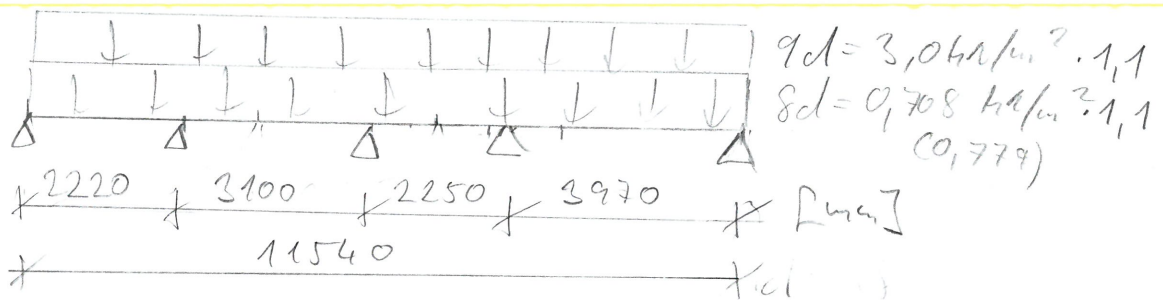 qd = 3,0 kN/m² · 1,1
gd = 0,708 kN/m² · 1,1
(0,779)
2220 3100 2250 3970 [mm]
11540